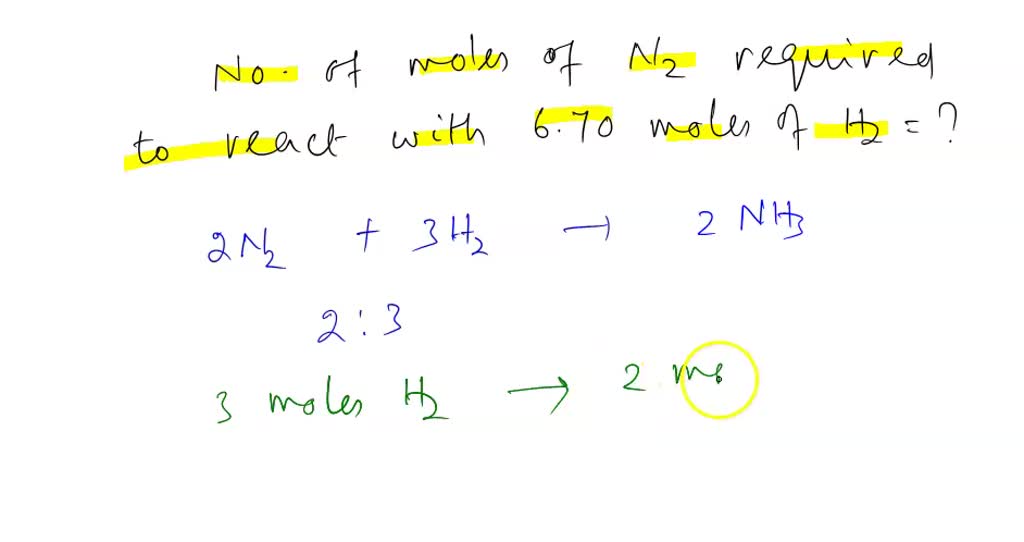 No. of moles of N2 required
to react with 6.70 moles of H2 = ?
2N2 + 3H2 → 2 NH3
2 : 3
3 moles H2 → 2 mo